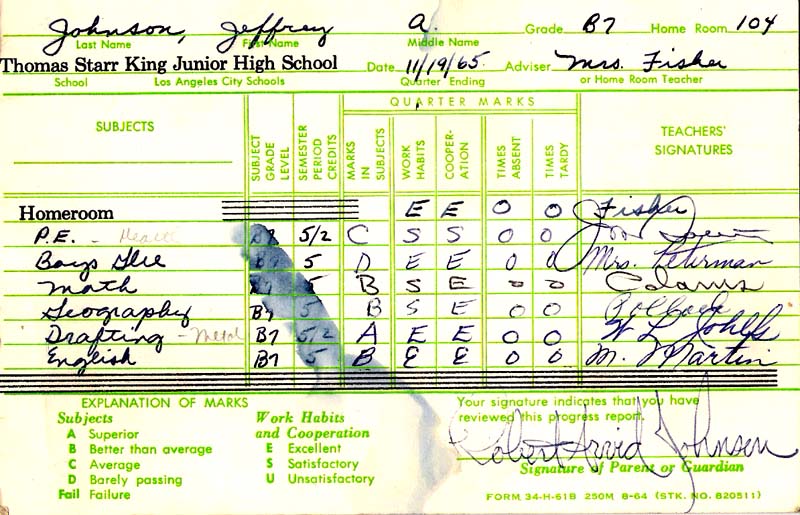 Johnson, Jeffrey A. Grade B7 Home Room 104
Last Name First Name Middle Name
Thomas Starr King Junior High School Date 11/19/65 Adviser Mrs. Fisher
School Los Angeles City Schools Quarter Ending or Home Room Teacher
QUARTER MARKS
SUBJECTS SUBJECT GRADE LEVEL SEMESTER PERIOD CREDITS MARKS IN SUBJECTS WORK HABITS COOPER-ATION TIMES ABSENT TIMES TARDY TEACHERS' SIGNATURES
Homeroom E E 0 0 Fisher
P.E. - Health B7 5/2 C S S 0 0
Boys Glee B7 5 D E E 0 0 Mrs. Lehrman
Math B7 5 B S E 0 0
Geography B7 5 B S E 0 0 Pollock
Drafting - Metal B7 5/2 A E E 0 0
English B7 5 B E E 0 0 M. Martin
EXPLANATION OF MARKS Your signature indicates that you have
Subjects Work Habits reviewed this progress report.
A Superior and Cooperation
B Better than average E Excellent Robert Arvid Johnson
C Average S Satisfactory Signature of Parent or Guardian
D Barely passing U Unsatisfactory
Fail Failure FORM 34-H-61B 250M 8-64 (STK. NO. 820511)